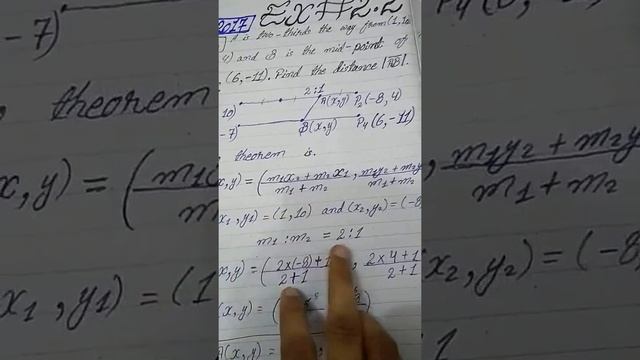 2017 Ex # 2.2
A is two-thirds the way from (1,10
4) and B is the mid-point of
-7)
(6,-11). Find the distance |AB|.
2:1
10) A(x,y) P₂(-8, 4)
-7) B(x,y) P₄(6,-11)
theorem is.
x,y) = (m₁x₂ + m₂x₁ / m₁ + m₂ , m₁y₂ + m₂y / m₁ + m₂
x₁, y₁) = (1,10) and (x₂,y₂) = (-8
m₁ : m₂ = 2:1
x,y) = (2×(-8)+1 / 2+1 , 2×4+1 / 2+1
(x,y) = (
A(x,y) =
-7)
theorem
x,y) = (m₁
x₁, y₁) = (1
P₄(6,-11)
m₁y₂ + m₂y / m₁ + m₂
x₂, y₂) = (-8